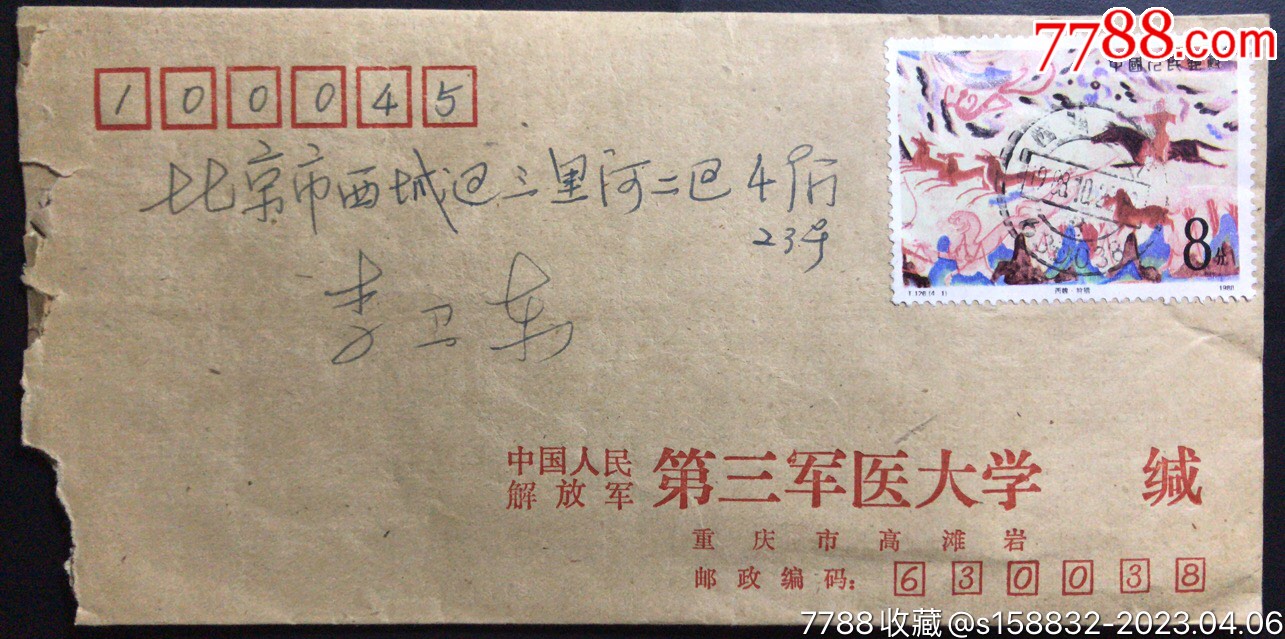 7788.com
中國人民郵政
100045
北京市西城区三里河二区4门
23号
李卫东
8分
T.126.(4-1)
1988
中国人民
解放军
第三军医大学 缄
重庆市高滩岩
邮政编码：630038
7788收藏@s158832-2023.04.06